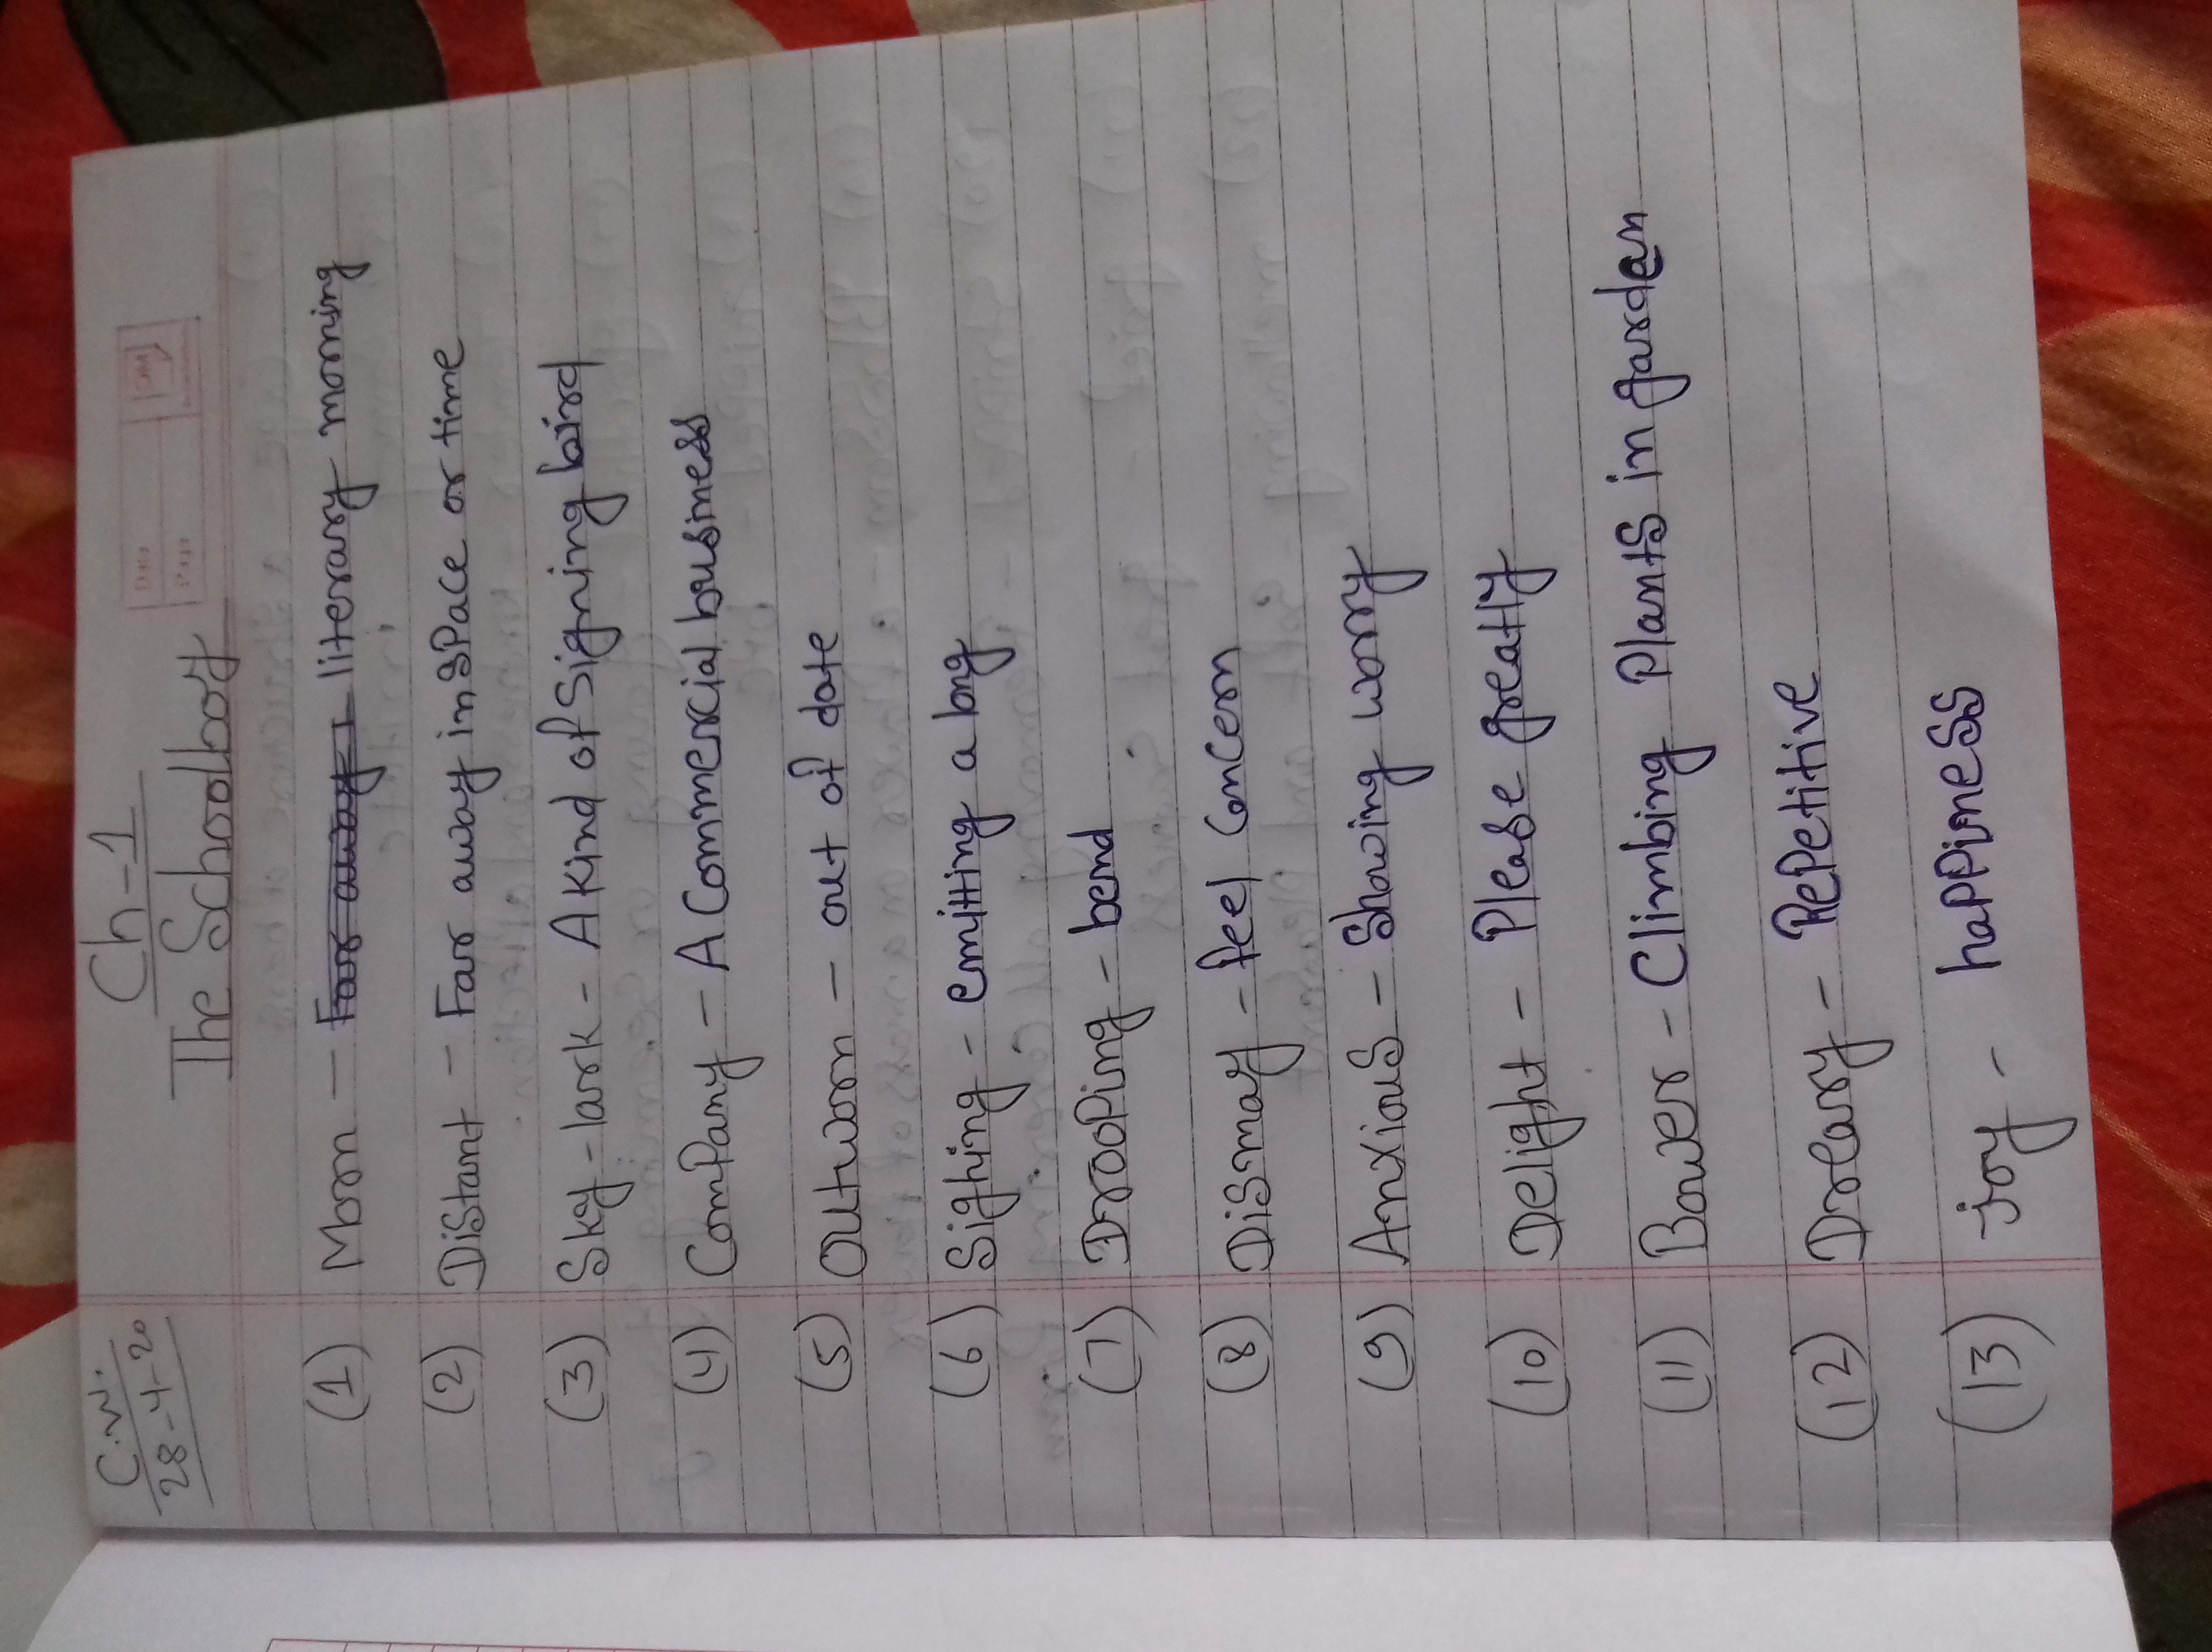 C.W.
28-4-20
Ch-1
The Schoolboy
Date
Page
(1) Morn - Far away literary morning
(2) Distant - Far away in space or time
(3) Sky-lark - A kind of Signing bird
(4) Company - A Commercial business
(5) Outworn - out of date
(6) Sighing - emitting a long
(7) Drooping - bend
(8) Dismay - feel Concern
(9) Anxious - Showing worry
(10) Delight - Please greatly
(11) Bower - Climbing Plants in garden
(12) Dreary - Repetitive
(13) joy - happiness